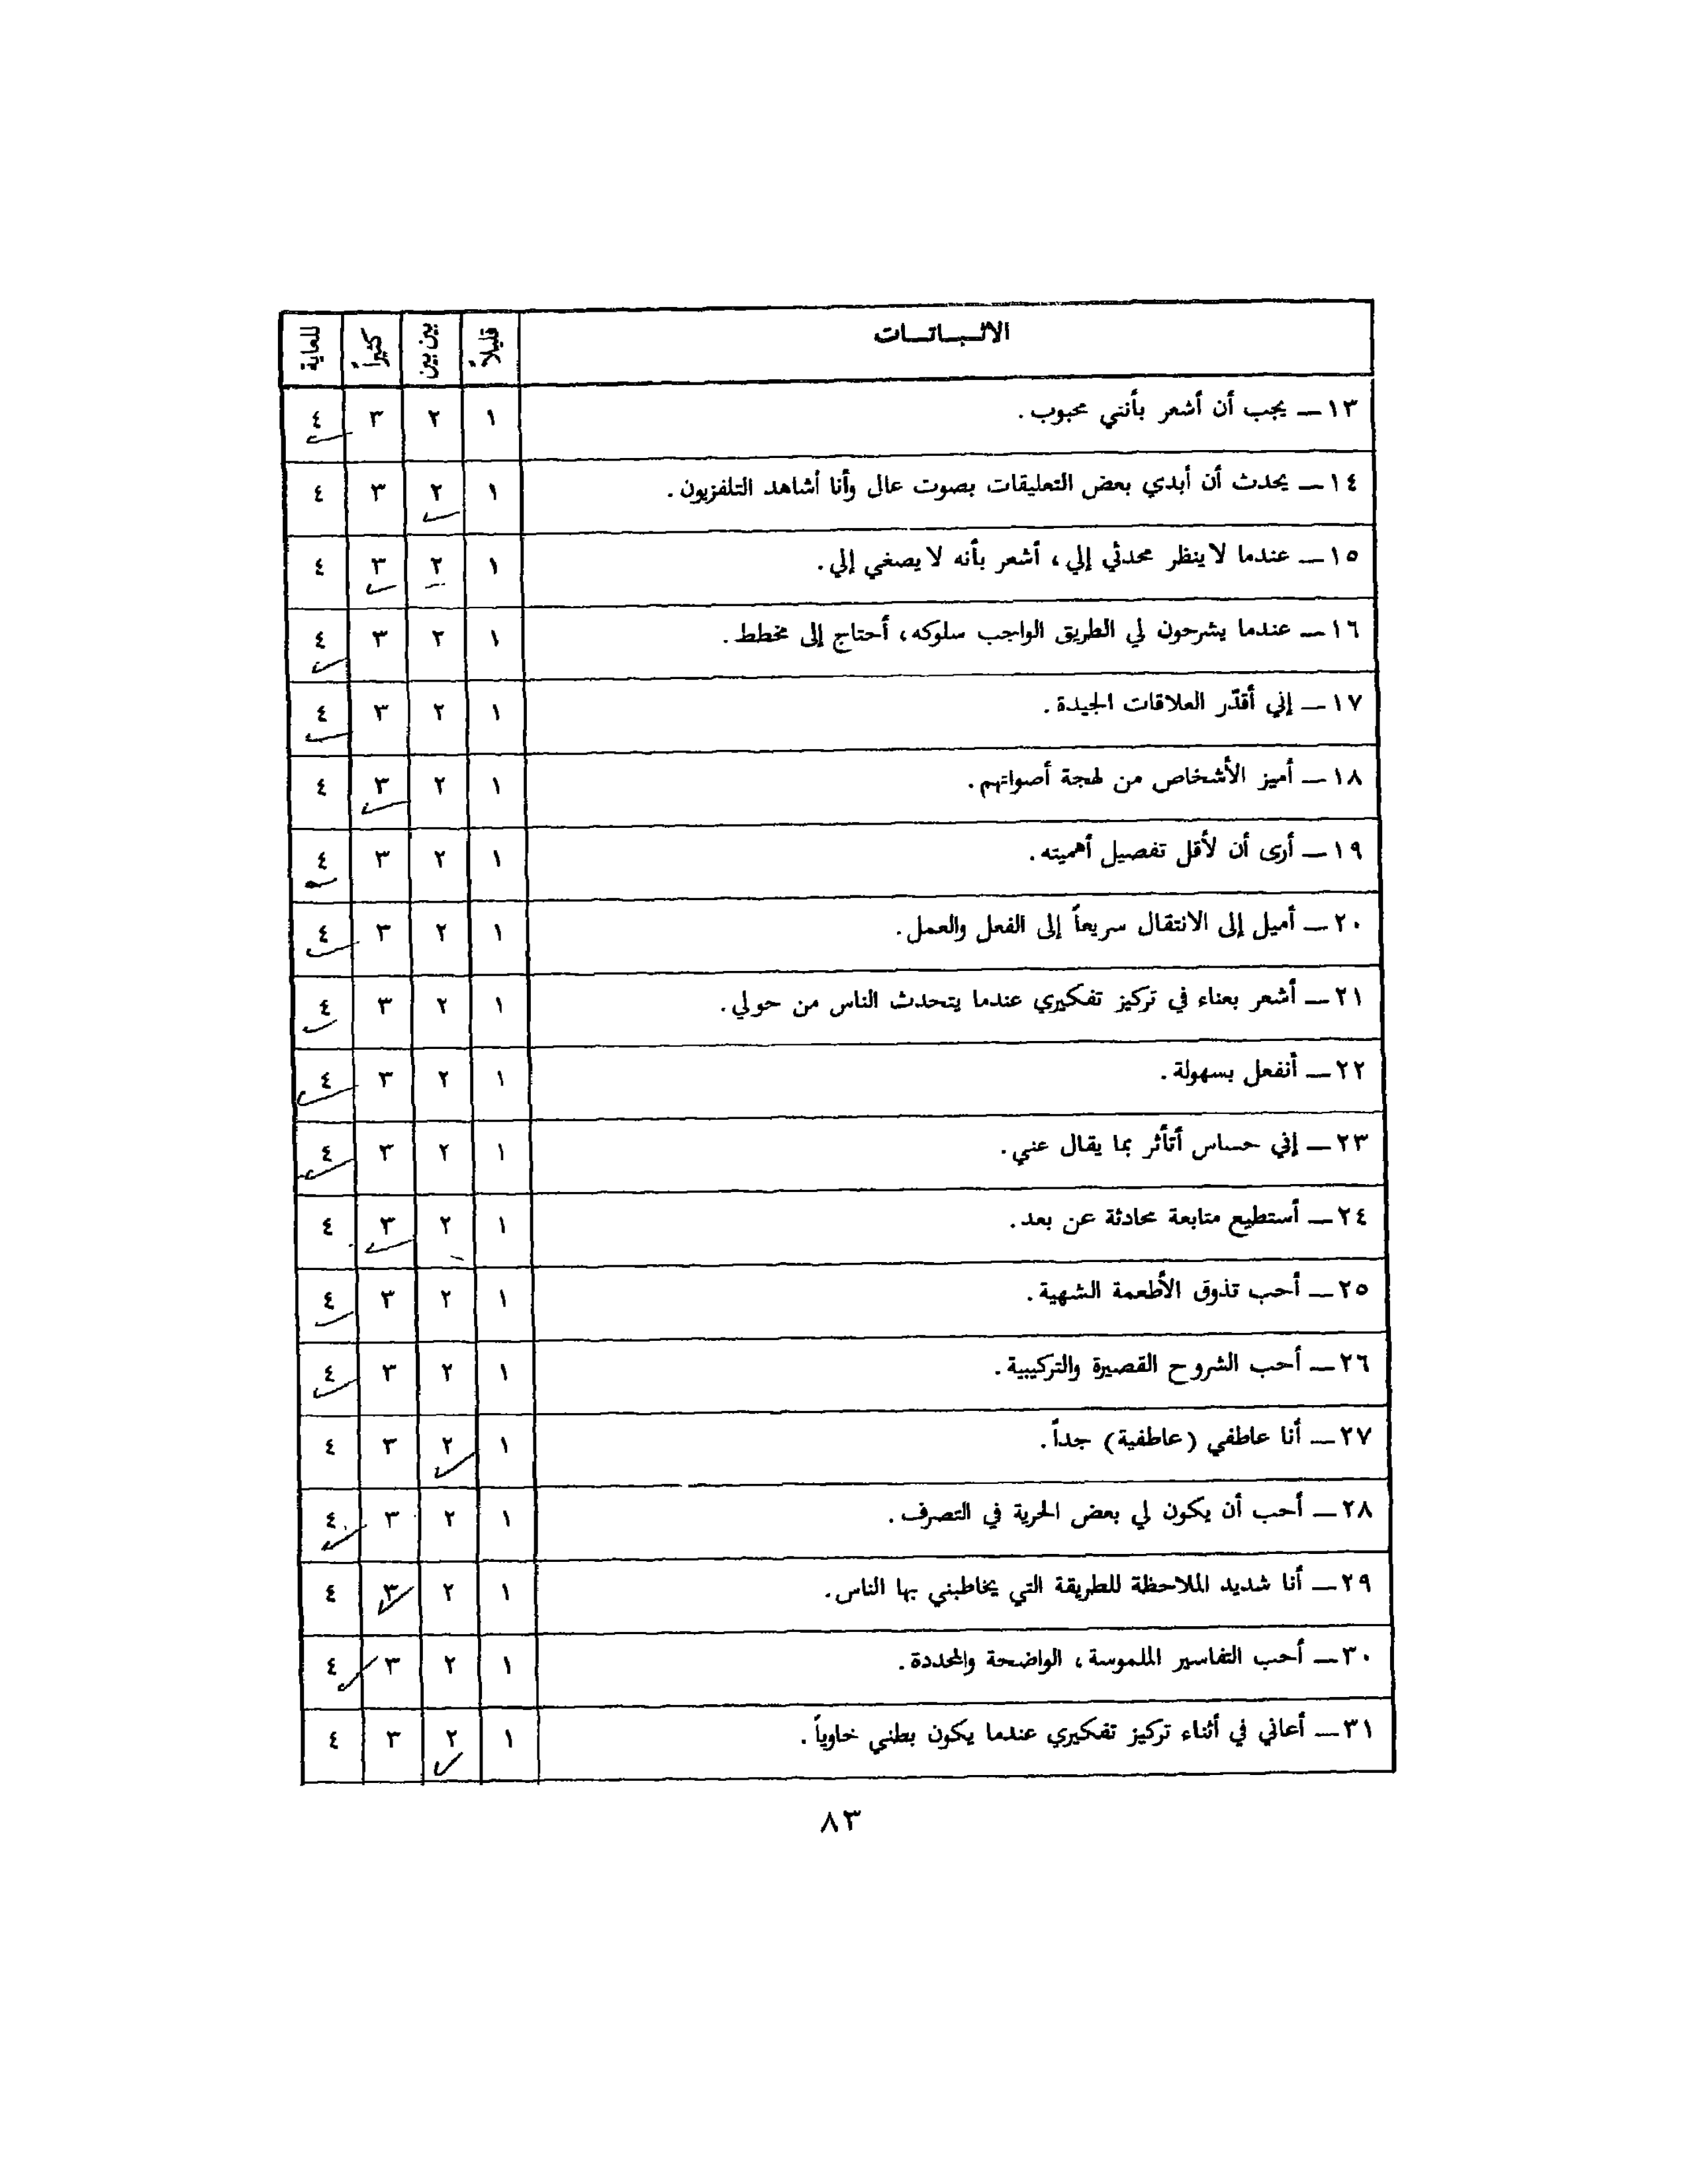 الاثـبـاتـات قليلاً بين بين كثيراً للغاية
١٣ — يجب أن أشعر بأنني محبوب. ١ ٢ ٣ ٤
١٤ — يحدث أن أبدي بعض التعليقات بصوت عال وأنا أشاهد التلفزيون. ١ ٢ ٣ ٤
١٥ — عندما لا ينظر محدثي إلي، أشعر بأنه لا يصغي إلي. ١ ٢ ٣ ٤
١٦ — عندما يشرحون لي الطريق الواجب سلوكه، أحتاج إلى مخطط. ١ ٢ ٣ ٤
١٧ — إني أقدّر العلاقات الجيدة. ١ ٢ ٣ ٤
١٨ — أميز الأشخاص من لهجة أصواتهم. ١ ٢ ٣ ٤
١٩ — أرى أن لأقل تفصيل أهميته. ١ ٢ ٣ ٤
٢٠ — أميل إلى الانتقال سريعاً إلى الفعل والعمل. ١ ٢ ٣ ٤
٢١ — أشعر بعناء في تركيز تفكيري عندما يتحدث الناس من حولي. ١ ٢ ٣ ٤
٢٢ — أنفعل بسهولة. ١ ٢ ٣ ٤
٢٣ — إني حساس أتأثر بما يقال عني. ١ ٢ ٣ ٤
٢٤ — أستطيع متابعة محادثة عن بعد. ١ ٢ ٣ ٤
٢٥ — أحب تذوق الأطعمة الشهية. ١ ٢ ٣ ٤
٢٦ — أحب الشروح القصيرة والتركيبية. ١ ٢ ٣ ٤
٢٧ — أنا عاطفي (عاطفية) جداً. ١ ٢ ٣ ٤
٢٨ — أحب أن يكون لي بعض الحرية في التصرف. ١ ٢ ٣ ٤
٢٩ — أنا شديد الملاحظة للطريقة التي يخاطبني بها الناس. ١ ٢ ٣ ٤
٣٠ — أحب التفاسير الملموسة، الواضحة والمحددة. ١ ٢ ٣ ٤
٣١ — أعاني في أثناء تركيز تفكيري عندما يكون بطني خاوياً. ١ ٢ ٣ ٤
٨٣